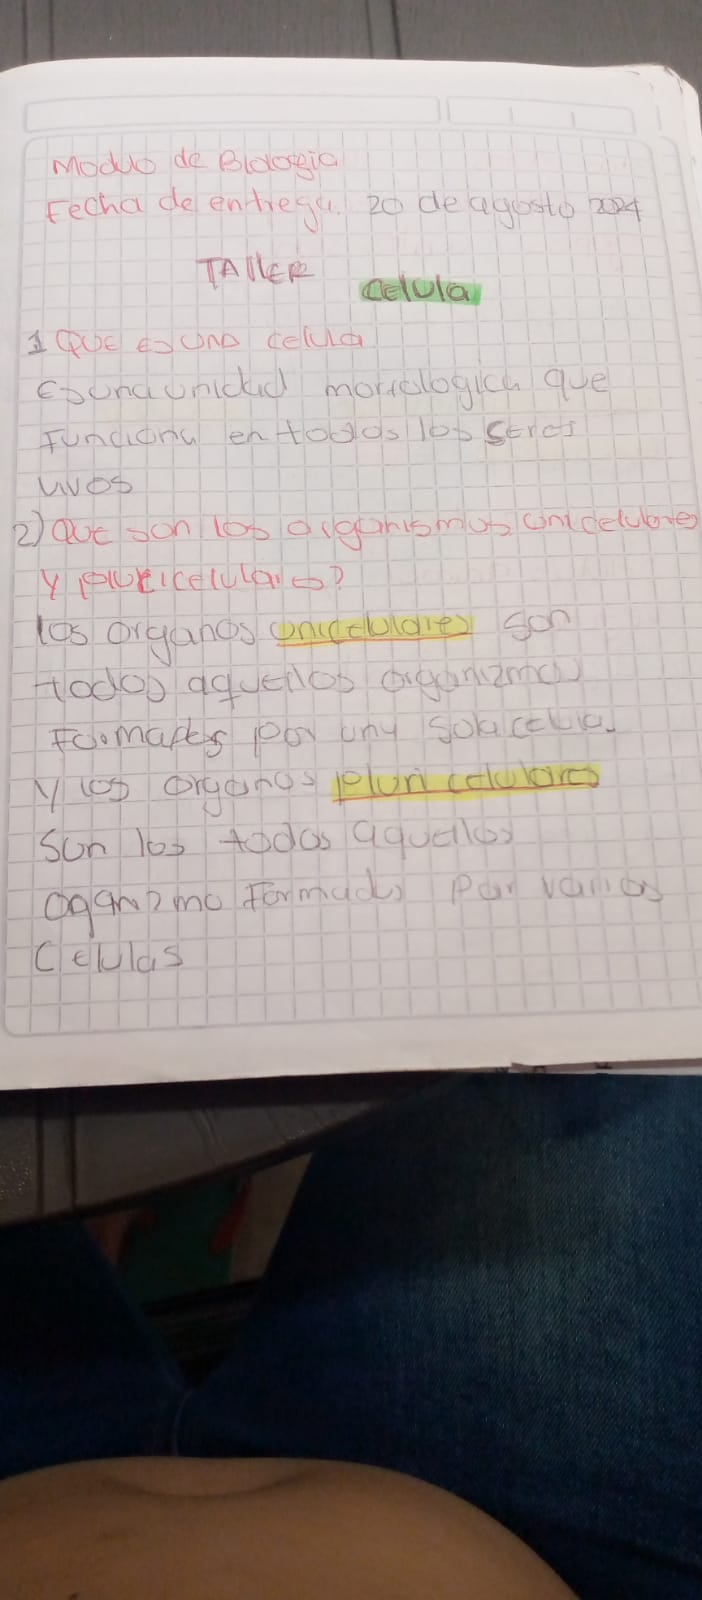 Moduo de Biologia
Fecha de entrega. 20 de agosto 2024
TAllER
celula
1 QUE ES UNA celula
Es una unidad morfologica que
Funciona en todos los seres
vivos
2) Que son los organismos unicelulares
y pluricelulares?
los organos unicelulares son
todos aquellos organizmos
Formados por una sola celula.
y los organos pluricelulares
Son los todos aquellos
oganizmo Formados por varios
Celulas